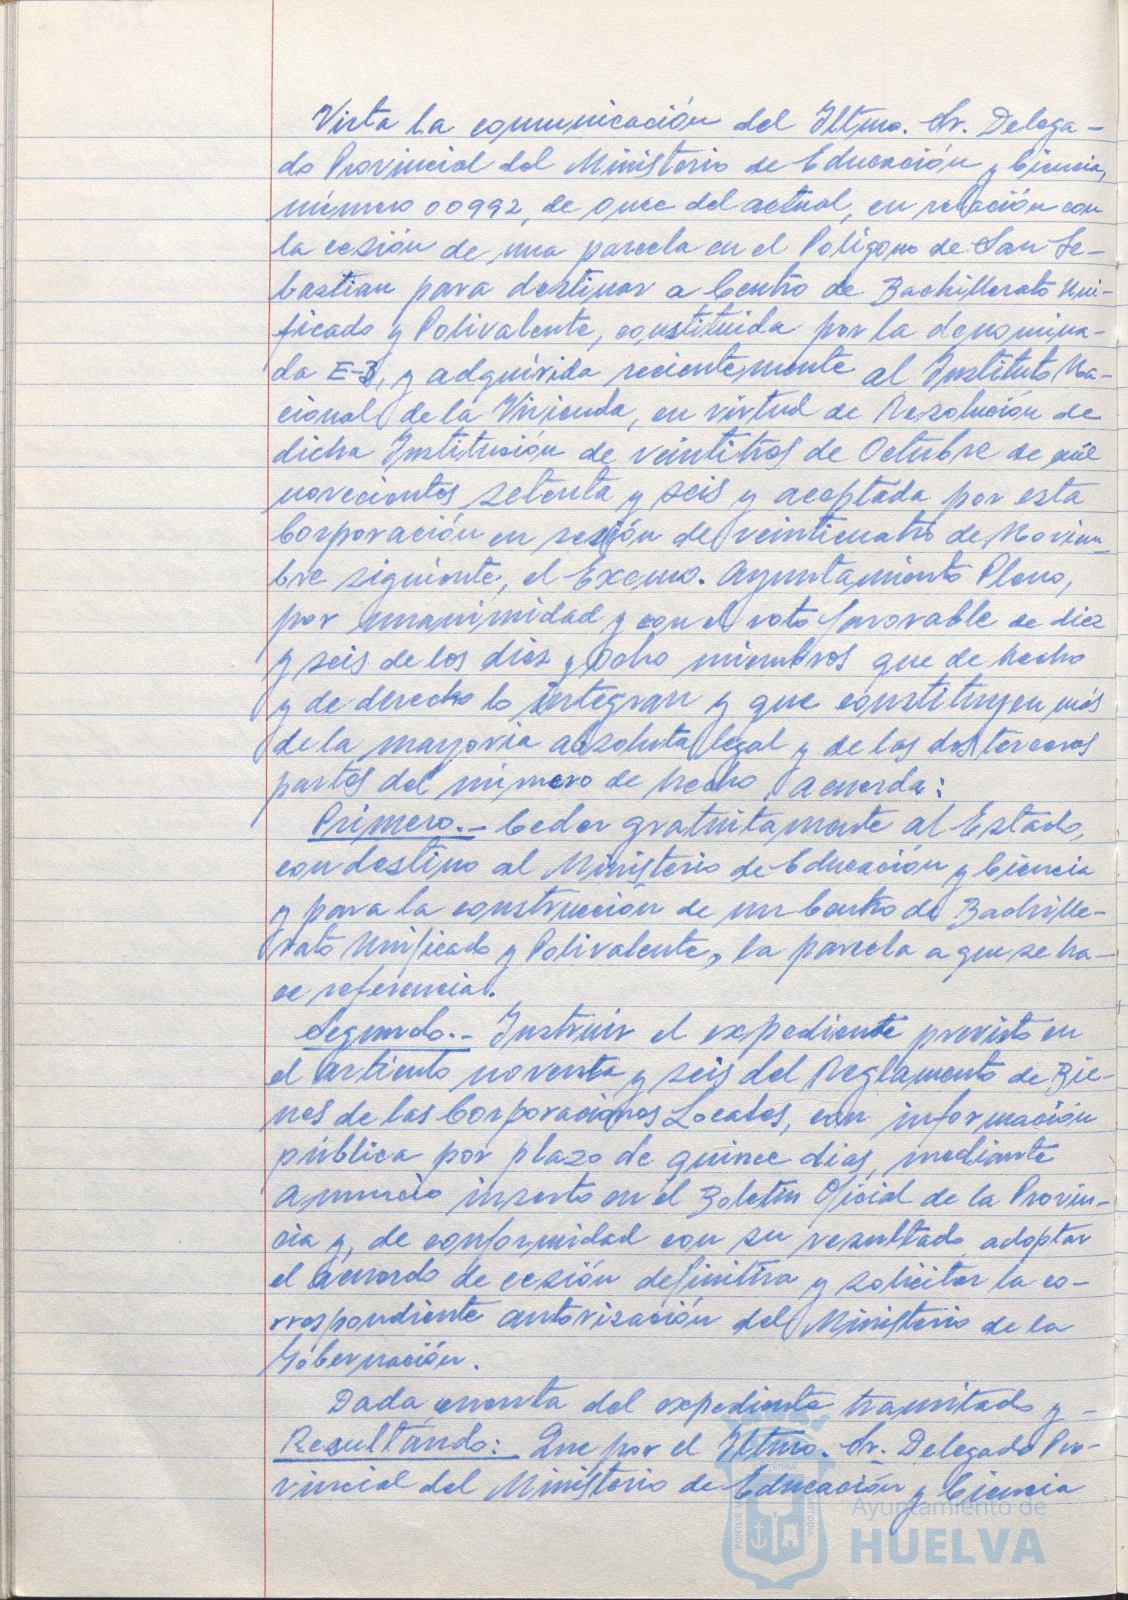 Vista la comunicación del Iltmo. Sr. Delega-
do Provincial del Ministerio de Educación y Ciencia,
número 00992, de once del actual, en relación con
la cesión de una parcela en el Polígono de San Se-
bastian para destinar a Centro de Bachillerato Uni-
ficado y Polivalente, constituida por la denomina-
da E-3, y adquirida recientemente al Instituto Na-
cional de la Vivienda, en virtud de Resolución de
dicha Institución de veintitres de Octubre de mil
novecientos setenta y seis y aceptada por esta
Corporación en sesión de veinticuatro de Noviem-
bre siguiente, el Excmo. Ayuntamiento Pleno,
por unanimidad y con el voto favorable de diez
y seis de los diez y ocho miembros que de hecho
y de derecho lo integran y que constituyen más
de la mayoria absoluta legal y de las dos terceras
partes del número de hecho, acuerda:
Primero.- Ceder gratuitamente al Estado,
con destino al Ministerio de Educación y Ciencia
y para la construcción de un Centro de Bachille-
rato Unificado y Polivalente, la parcela a que se ha-
ce referencia.
Segundo.- Instruir el expediente previsto en
el artículo noventa y seis del Reglamento de Bie-
nes de las Corporaciones Locales, con información
pública por plazo de quince dias, mediante
anuncio inserto en el Boletín Oficial de la Provin-
cia y, de conformidad con su resultado adoptar
el acuerdo de cesión definitiva y solicitar la co-
rrespondiente autorización del Ministerio de la
Gobernación.
Dada cuenta del expediente tramitado y -
Resultando: Que por el Iltmo. Sr. Delegado Pro-
vincial del Ministerio de Educación y Ciencia
Ayuntamiento de
HUELVA